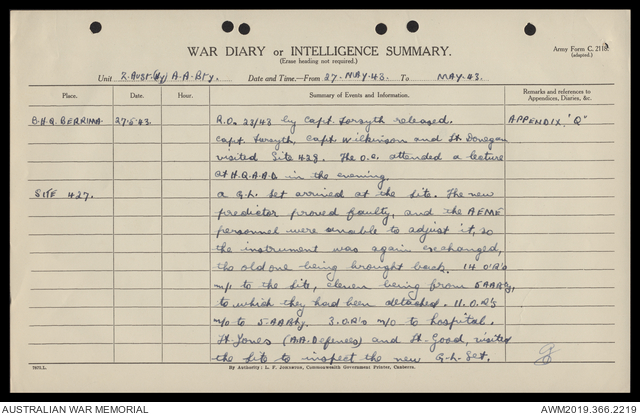 Army Form C. 2118.
(adapted.)
WAR DIARY or INTELLIGENCE SUMMARY.
(Erase heading not required.)
Unit 2. Aust. (Hy) A-A-Bty. Date and Time—From 27-MAY-43. To MAY-43.
Place. Date. Hour. Summary of Events and Information. Remarks and references to Appendices, Diaries, &c.
B.H.Q. BERRIMA. 27-5-43. R.O. 23/43 by Capt. Forsyth released. APPENDIX. "Q"
Capt. Forsyth, Capt. Wilkinson and Lt. Donegan
visited Site 428. The O.C. attended a lecture
at H.Q.A.A.D in the evening.
SITE 427. A G.L. Set arrived at the Site. The new
predictor proved faulty, and the AEME
personnel were unable to adjust it, so
the instrument was again exchanged,
the old one being brought back. 14 O'R's
m/i to the Site, eleven being from 5 AABty,
to which they had been detached. 11. O.R's
m/o to 5. AABty. 3. O.R's m/o to hospital.
Lt. Jones (A.A. Defences) and Lt. Good, visited
the Site to inspect the new G.L. Set.
7871.L. By Authority: L. F. Johnston, Commonwealth Government Printer, Canberra.
AUSTRALIAN WAR MEMORIAL AWM2019.366.2219